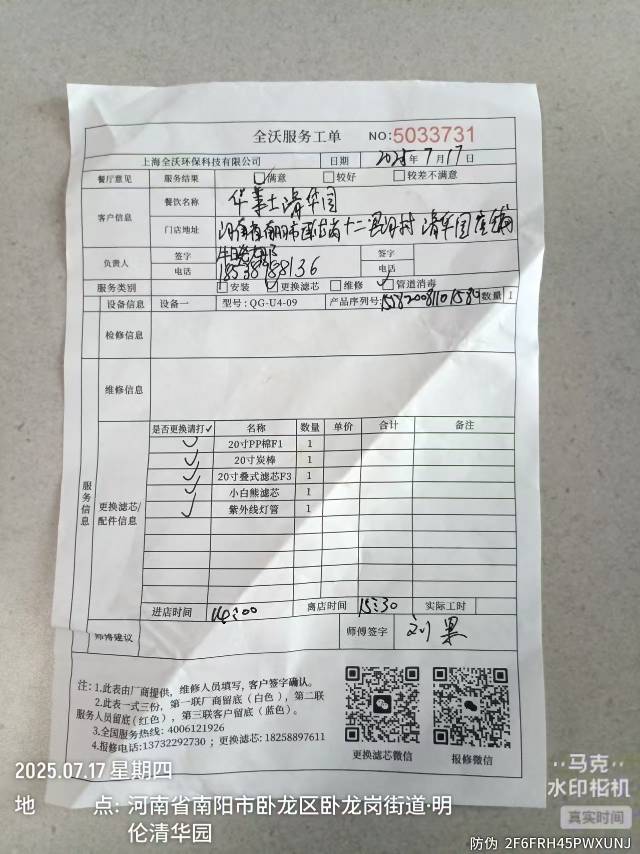 全沃服务工单 NO:5033731
上海全沃环保科技有限公司 日期 2025年7月17日
餐厅意见 服务结果 满意 较好 较差不满意
客户信息 餐饮名称 华莱士清华园
门店地址 河南省南阳市 十二里河村 清华园
负责人 签字 签字
电话 18538188136 电话
服务类别 安装 更换滤芯 维修 管道消毒
设备信息 设备一 型号:QG-U4-09 产品序列号: 数量 1
检修信息
维修信息
服务信息
更换滤芯/配件信息
是否更换请打✓ 名称 数量 单价 合计 备注
✓ 20寸PP棉F1 1
✓ 20寸炭棒 1
✓ 20寸叠式滤芯F3 1
✓ 小白熊滤芯 1
✓ 紫外线灯管 1
进店时间 14:00 离店时间 15:30 实际工时
师傅建议 师傅签字 刘果
注:1.此表由厂商提供,维修人员填写,客户签字确认。
2.此表一式三份,第一联厂商留底(白色),第二联
服务人员留底(红色),第三联客户留底(蓝色)。
3.全国服务热线:4006121926
4.报修电话:13732292730;更换滤芯:18258897611
更换滤芯微信 报修微信
2025.07.17 星期四
地 点:河南省南阳市卧龙区卧龙岗街道·明
伦清华园
马克
水印相机
真实时间
防伪 2F6FRH45PWXUNJ